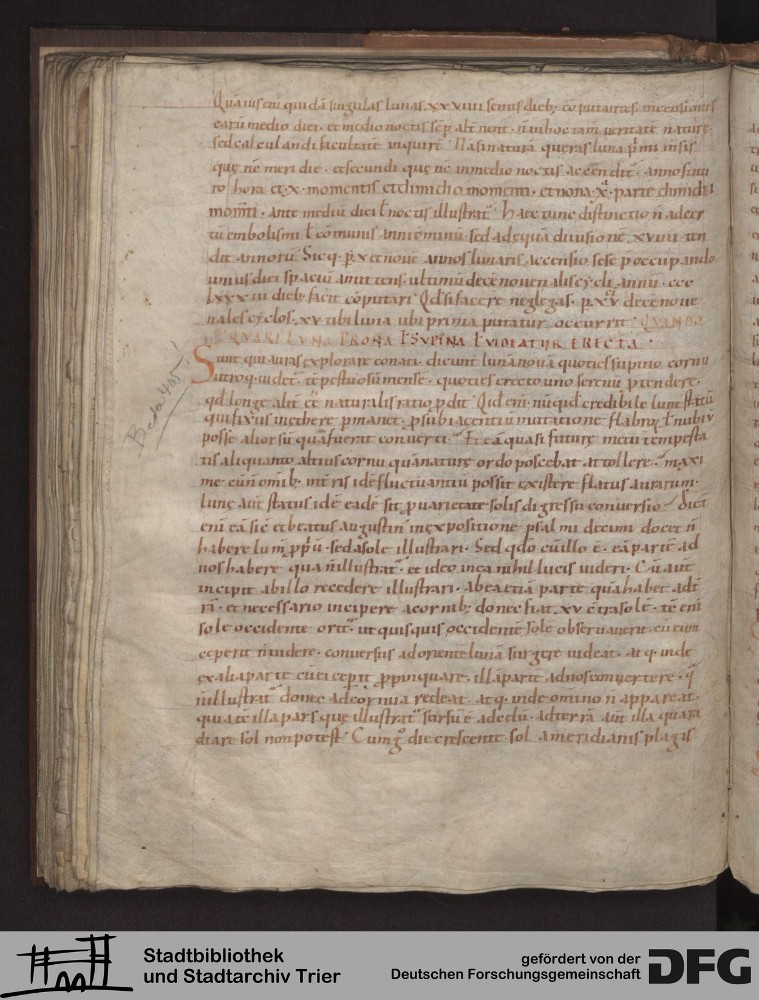 Quāuis eni quidā singulas lunas xxviiii semis dieb; cōputantes incensiones
earū medio diei · et medio noctis sēp alt̄nent · n̄ in hoc tam̄ ueritatē naturę
sed calculandi facultatē inquir̄t
quę nē meridie · et secundi quę nē in medio noctis accendit̄ · anno
ro hora et · x · momentis et dimidio momenti · et nona · x · parte dimidii
mom̄ti · ante mediū diei ł noctis illustrat̄ · haec tunc distinctio n̄ ad
tū embolismi ł cōmunis anni · sed ad ęquā diuisionē · xviiii · ten
dit annorū · Sicq · p · x et nouē annos lunaris accensio sese p̄occupando
unius diei spaciū amittens · ultimū decēnouenalis cycli annū · ccc
lxxx iii dieb; facit cōputari · Qd si facere neglegas · p xv decēnoue
nales cyclos · xv tibi luna ubi prima putatur occurrit · QUANDO
QUARE LUNA PRONA ł SUPINA ł UIDEATUR ERECTA ·
Sunt qui auras explorare conati dicunt lunā nouā quoties supino cornu
utroq; uidet̄ · tēpestuosū mensē · quoties erecto uno serenū p̄tendere ·
qd longe alit̄ eē naturalis ratio p̄dit · Qid eni · nūquid credibile lunę statū
qui fixus in ethere p̄manet · p subiacentiū mutatione flabroꝝ ł nubiū
posse aliorsū quā fuerat conuerti · Et eā quasi futurę metu tempesta
tis aliquanto altius cornu quā naturę ordo poscebat attollere · maxi
me cū n̄ omib; in t̄ris idē fluctuantiū possit existere flatus aurarum ·
lunę aut̄ status idē eadē sit p uarietate solis digressu conuersio · Dicit
eni eā sic et beatus augustin' in expositione psalmi decimi docet n̄
habere lum̄ p̄p̄ū · sed a sole illustrari · Sed qdo cū illo ē · eā partē ad
nos habere qua n̄ illustrat̄ · et ideo in ea nihil lucis uideri · Cū aut̄
incipit ab illo recedere illustrari · ab ea etiā parte quā habet ad t̄
rā · et necessario incipere a cornib; donec fiat · xv · cōtra solē · tē eni
sole occidente orit̄ · ut quisquis occidentē solē obseruauerit · cū eum
ceperit n̄ uidere · conuersus ad orientē lunā surgere uideat · atq; inde
ex alia parte cū ei ceperit p̄pinquare · illā partē ad nos conuertere · q̄
n̄ illustrat̄ donec ad cornua redeat · atq; inde omino n̄ appareat ·
quia tē illa pars quę illustrat̄ sursū ē ad celū · ad terrā aut̄ illa quā ra
diare sol non potest · Cum g° die crescente sol a meridianis plagis
Beda 405!
Stadtbibliothek
und Stadtarchiv Trier
gefördert von der
Deutschen Forschungsgemeinschaft
DFG